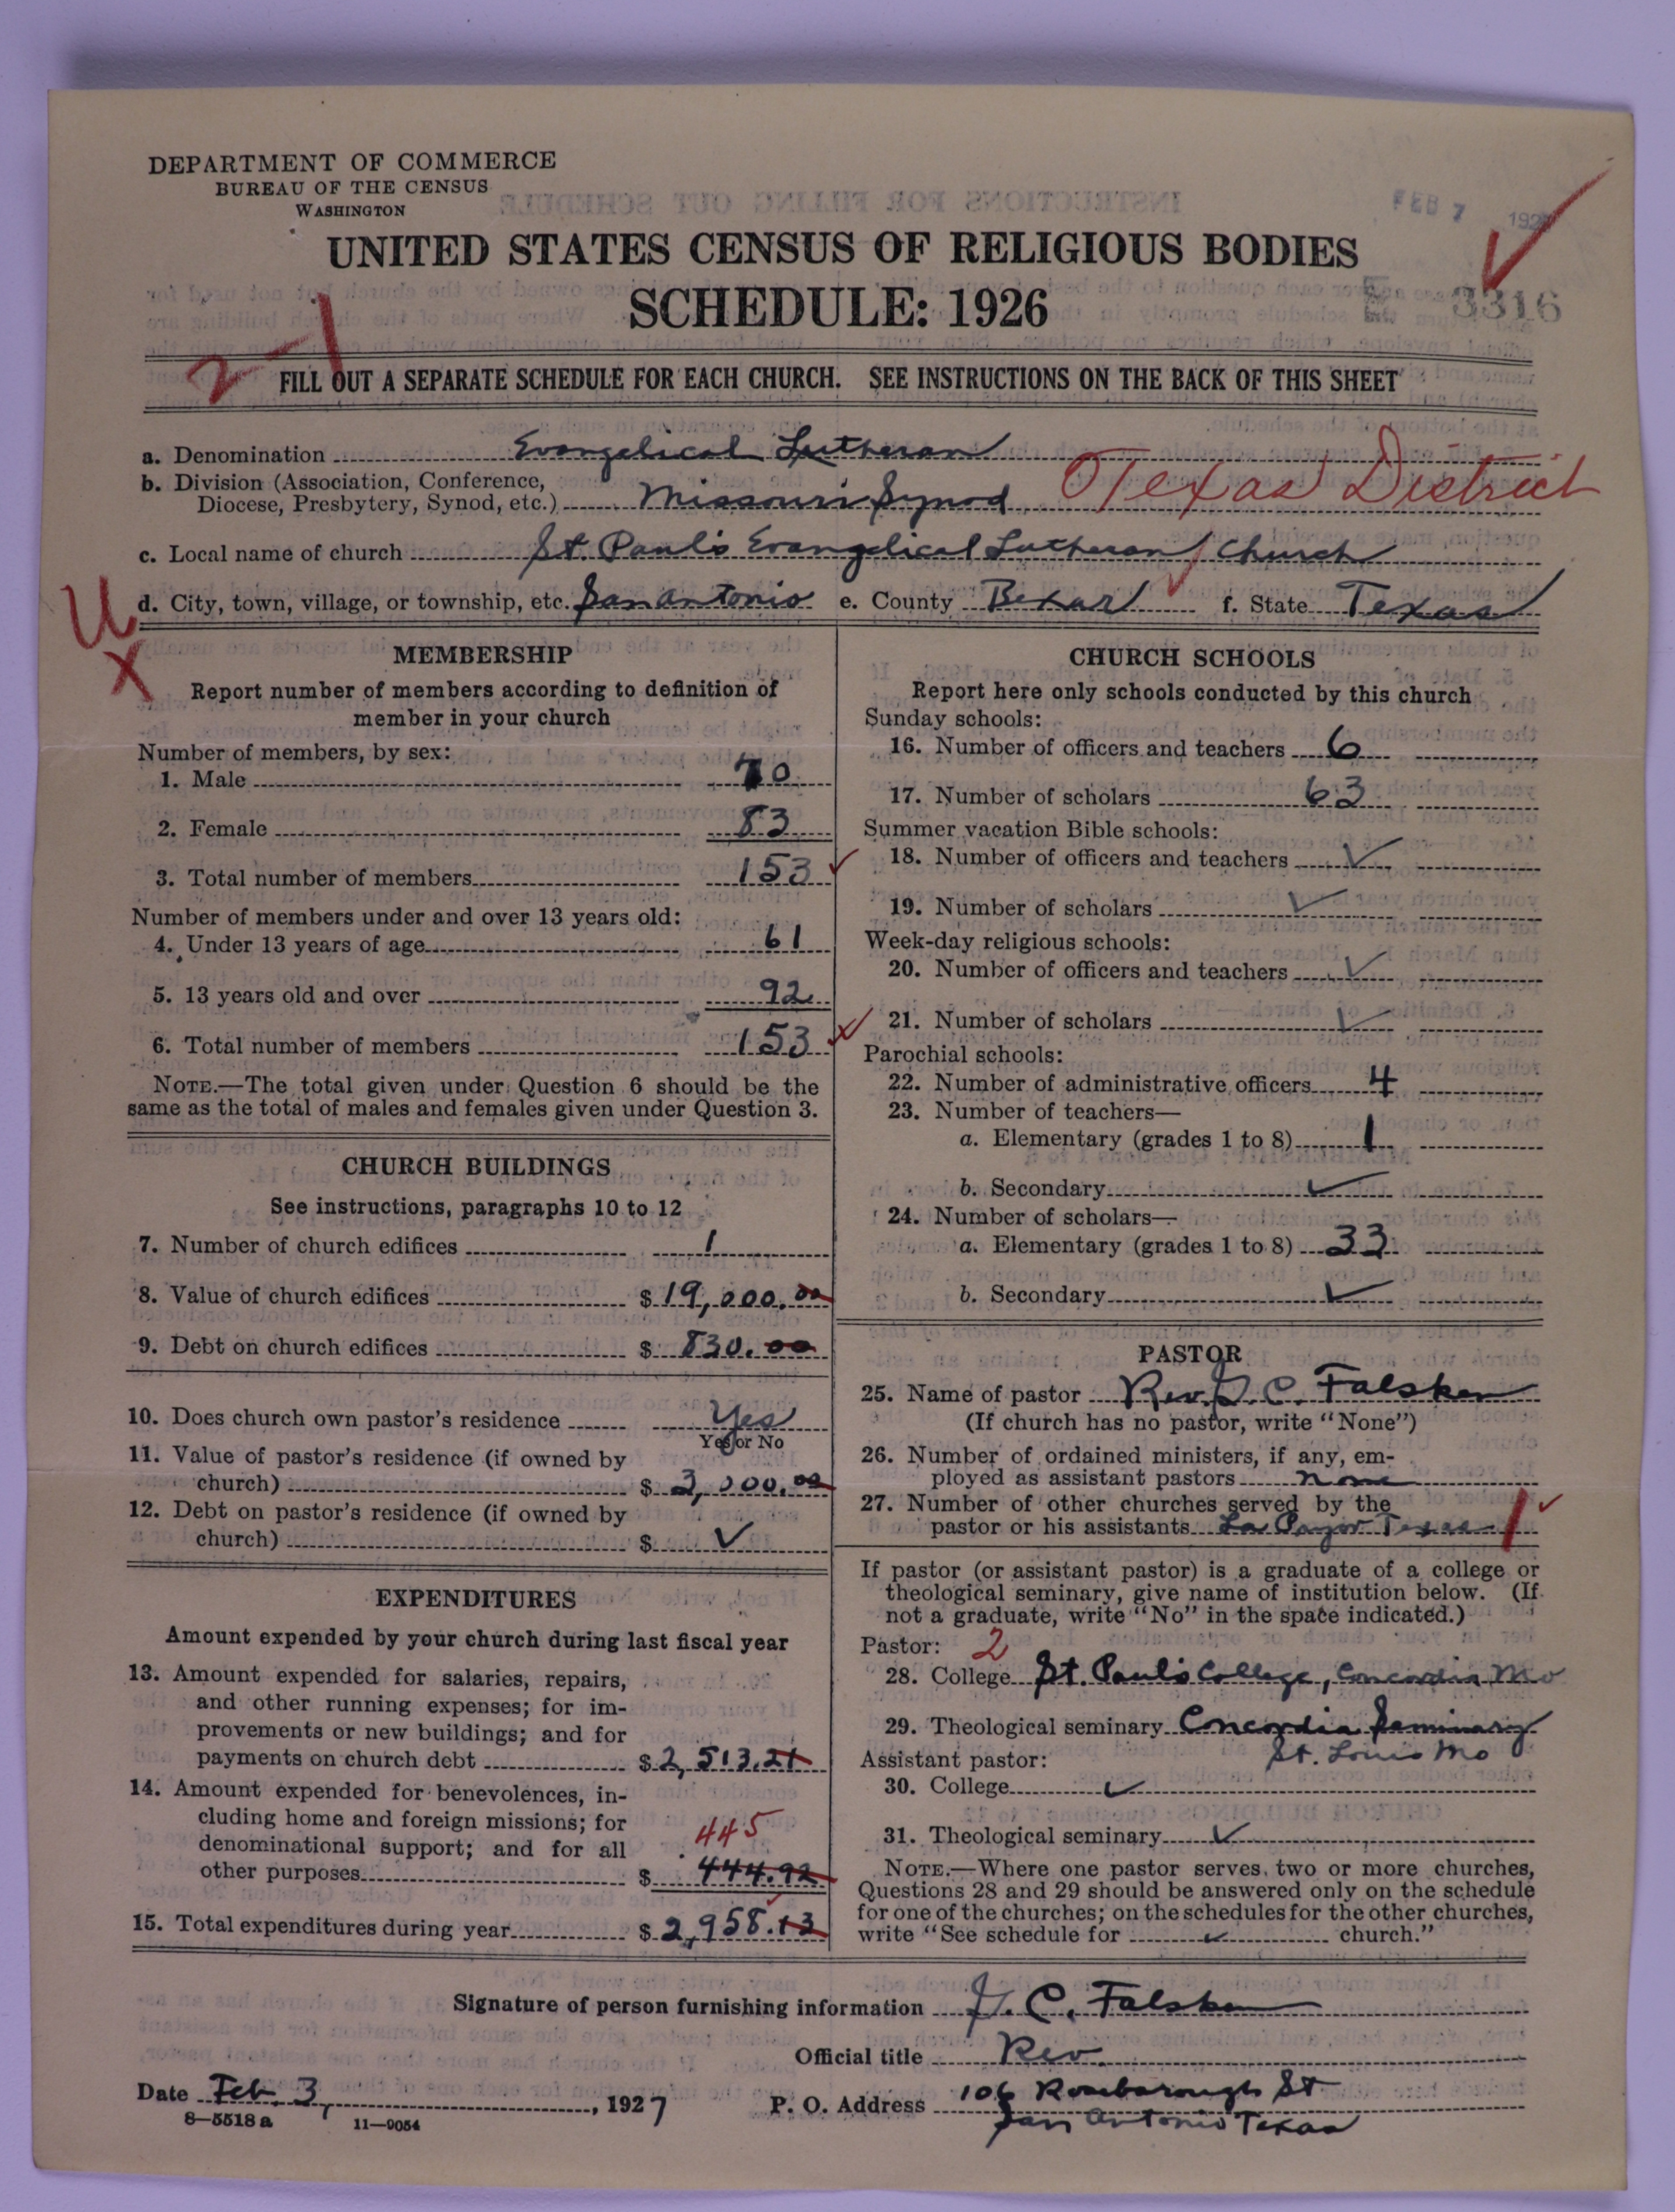 DEPARTMENT OF COMMERCE
BUREAU OF THE CENSUS
WASHINGTON
FEB 7 192
UNITED STATES CENSUS OF RELIGIOUS BODIES
SCHEDULE: 1926
3316
2-1
FILL OUT A SEPARATE SCHEDULE FOR EACH CHURCH. SEE INSTRUCTIONS ON THE BACK OF THIS SHEET
a. Denomination Evangelical Lutheran
b. Division (Association, Conference,
Diocese, Presbytery, Synod, etc.) Missouri Synod Texas District
c. Local name of church St. Paul's Evangelical Lutheran Church
U d. City, town, village, or township, etc. San Antonio e. County Bexar f. State Texas
X
MEMBERSHIP
Report number of members according to definition of
member in your church
Number of members, by sex:
1. Male 70
2. Female 83
3. Total number of members 153
Number of members under and over 13 years old:
4. Under 13 years of age 61
5. 13 years old and over 92
6. Total number of members 153
NOTE.—The total given under Question 6 should be the
same as the total of males and females given under Question 3.
CHURCH BUILDINGS
See instructions, paragraphs 10 to 12
7. Number of church edifices 1
8. Value of church edifices $ 19,000.00
9. Debt on church edifices $ 830.00
10. Does church own pastor's residence Yes
Yes or No
11. Value of pastor's residence (if owned by
church) $ 3,000.00
12. Debt on pastor's residence (if owned by
church) $ ✓
EXPENDITURES
Amount expended by your church during last fiscal year
13. Amount expended for salaries, repairs,
and other running expenses; for im-
provements or new buildings; and for
payments on church debt $ 2,513.21
14. Amount expended for benevolences, in-
cluding home and foreign missions; for
denominational support; and for all 445
other purposes $ 444.92
15. Total expenditures during year $ 2,958.13
CHURCH SCHOOLS
Report here only schools conducted by this church
Sunday schools:
16. Number of officers and teachers 6
17. Number of scholars 63
Summer vacation Bible schools:
18. Number of officers and teachers ✓
19. Number of scholars ✓
Week-day religious schools:
20. Number of officers and teachers ✓
21. Number of scholars ✓
Parochial schools:
22. Number of administrative officers 4
23. Number of teachers—
a. Elementary (grades 1 to 8) 1
b. Secondary ✓
24. Number of scholars—
a. Elementary (grades 1 to 8) 33
b. Secondary ✓
PASTOR
25. Name of pastor Rev. J. C. Falsken
(If church has no pastor, write "None")
26. Number of ordained ministers, if any, em-
ployed as assistant pastors none
27. Number of other churches served by the
pastor or his assistants La Pryor Texas 1
If pastor (or assistant pastor) is a graduate of a college or
theological seminary, give name of institution below. (If
not a graduate, write "No" in the space indicated.)
Pastor: 2
28. College St. Paul's College, Concordia Mo
29. Theological seminary Concordia Seminary
St. Louis Mo
Assistant pastor:
30. College ✓
31. Theological seminary ✓
NOTE.—Where one pastor serves two or more churches,
Questions 28 and 29 should be answered only on the schedule
for one of the churches; on the schedules for the other churches,
write "See schedule for ✓ church."
Signature of person furnishing information J. C. Falsken
Official title Rev.
Date Feb. 3, 1927
P. O. Address 106 Roseborough St
San Antonio Texas
8—5518 a 11—9054